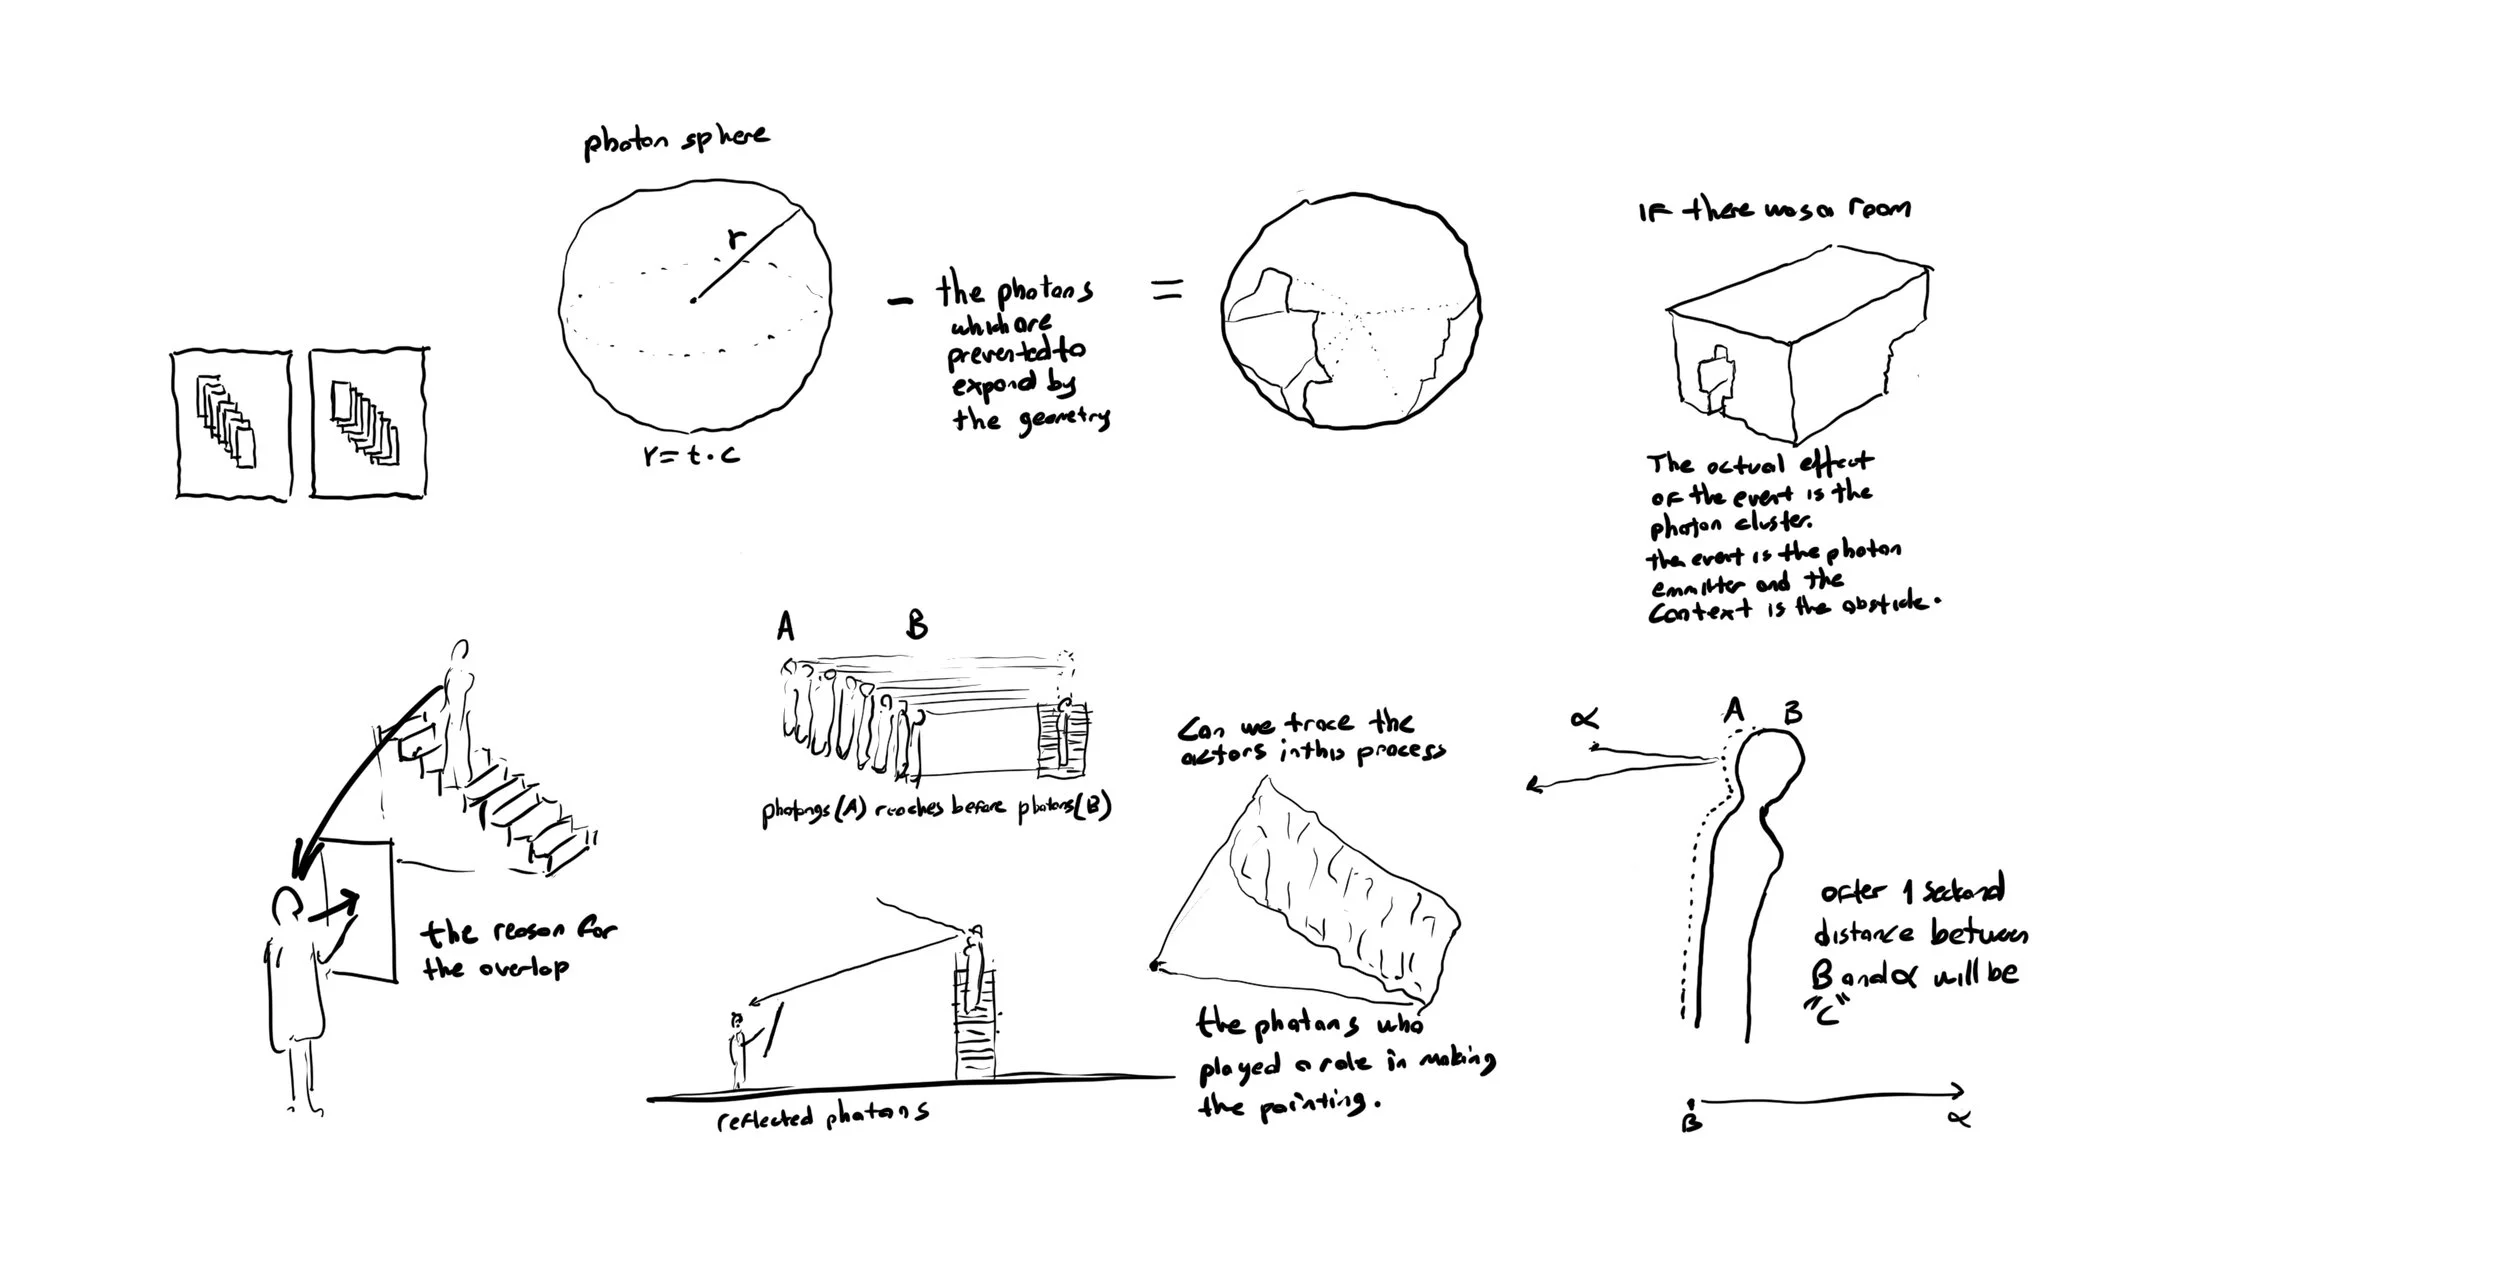 photon sphere
r
r = t . c
- the photons
which are
prevented to
expand by
the geometry
=
IF there was a room
The actual effect
of the event is the
photon cluster.
the event is the photon
emmitter and the
context is the obsticle.
the reason for
the overlap
A B
photongs (A) reaches before photons (B)
reflected photons
Can we trace the
actors in this process
the photons who
played a role in making
the painting.
A B
α
after 1 seckond
distance between
B and α will be
"c"
B α